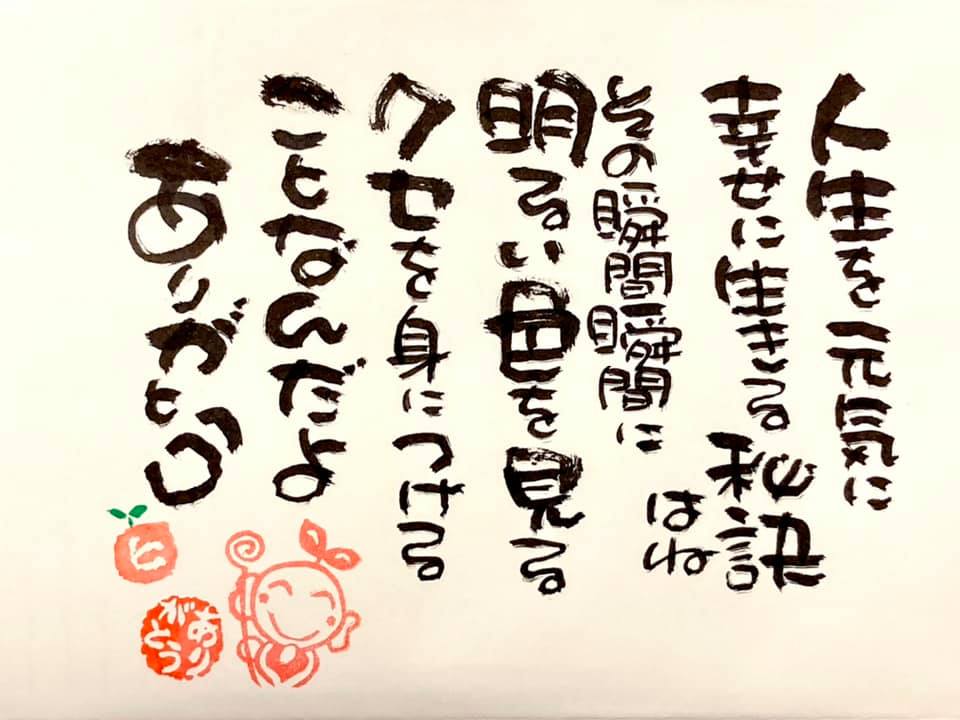 人生を元気に
幸せに生きる秘訣
はね
その瞬間瞬間に
明るい色を見る
クセを身につける
ことなんだよ
ありがとう
ヒ
ありがとう